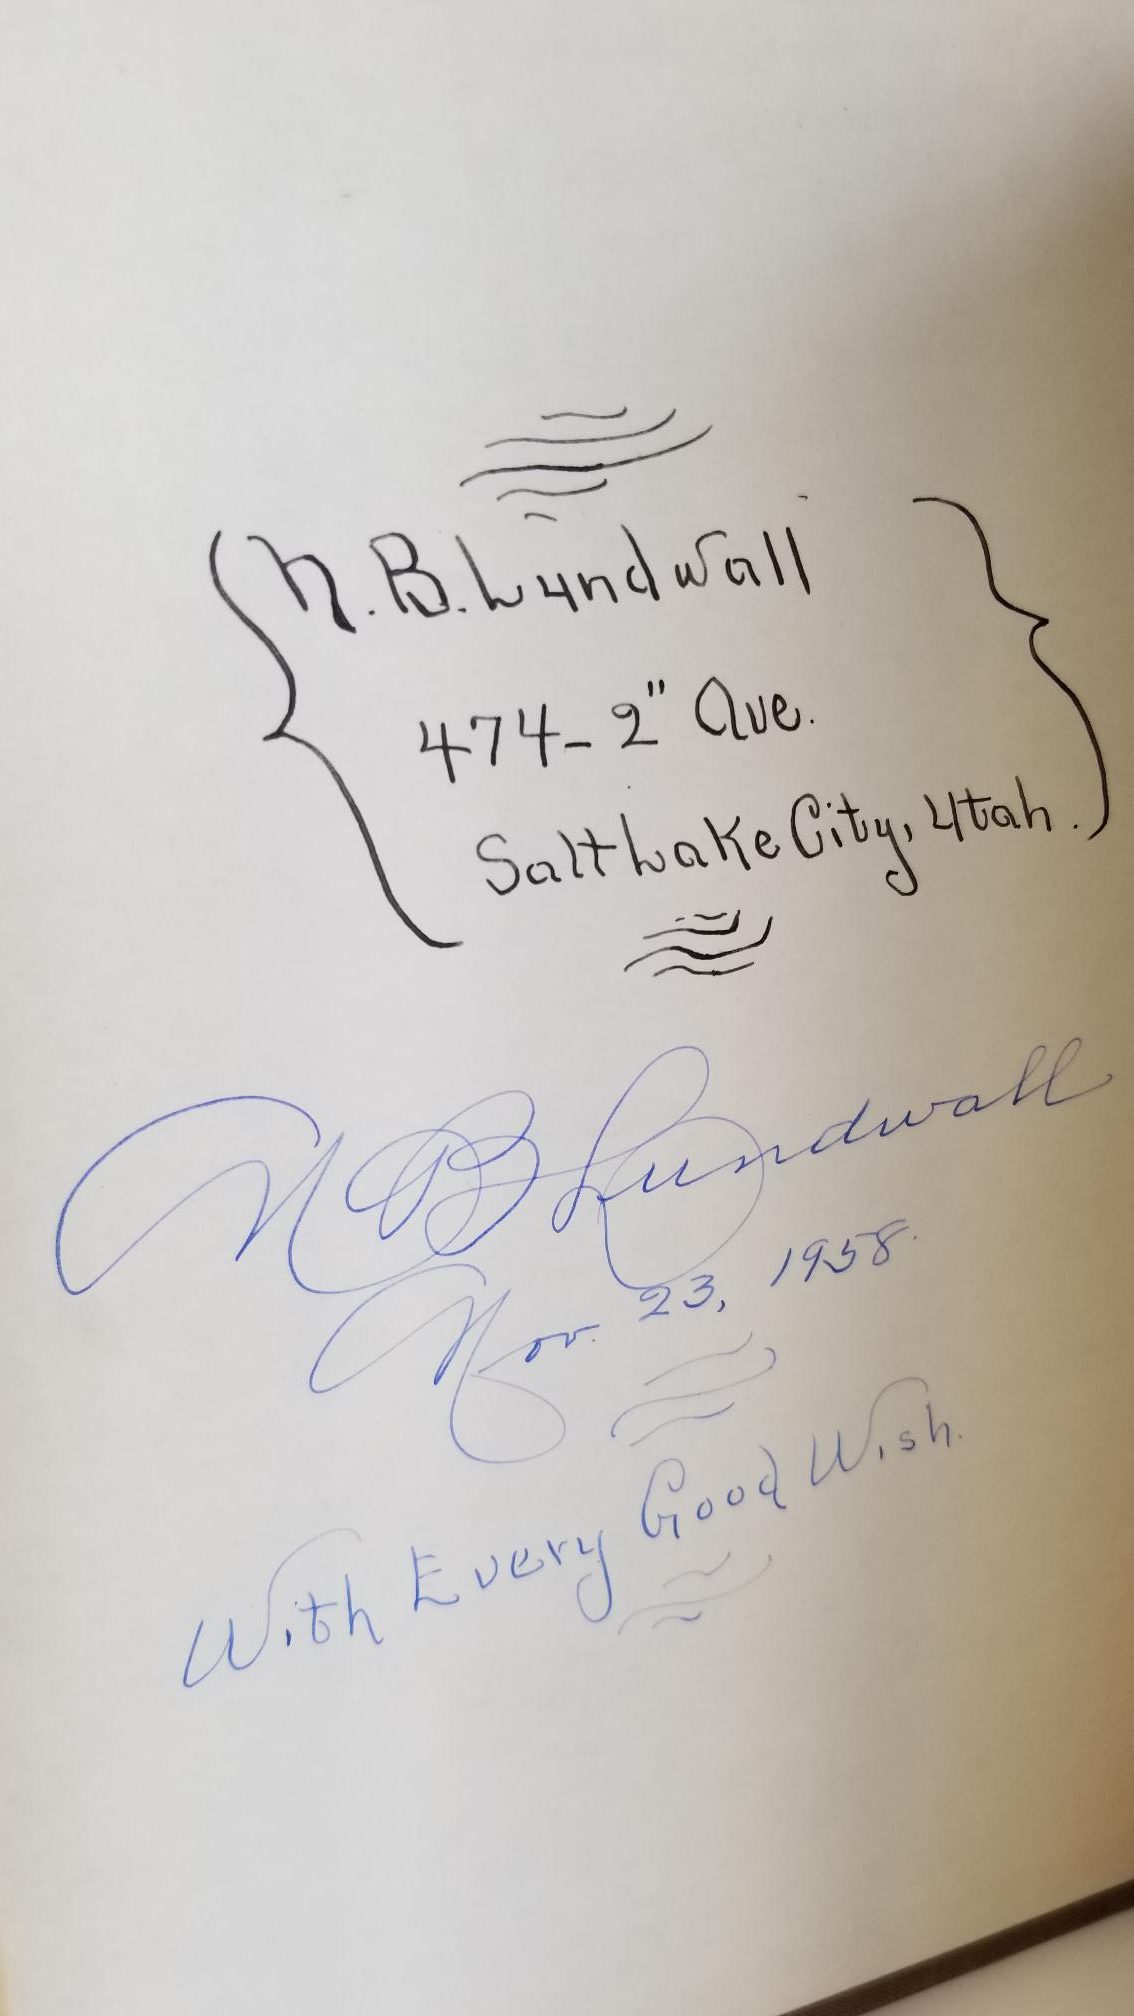 N. B. Lundwall
474 - 2" Ave.
Salt Lake City, Utah.
N B Lundwall
Nov. 23, 1958.
With Every Good Wish.